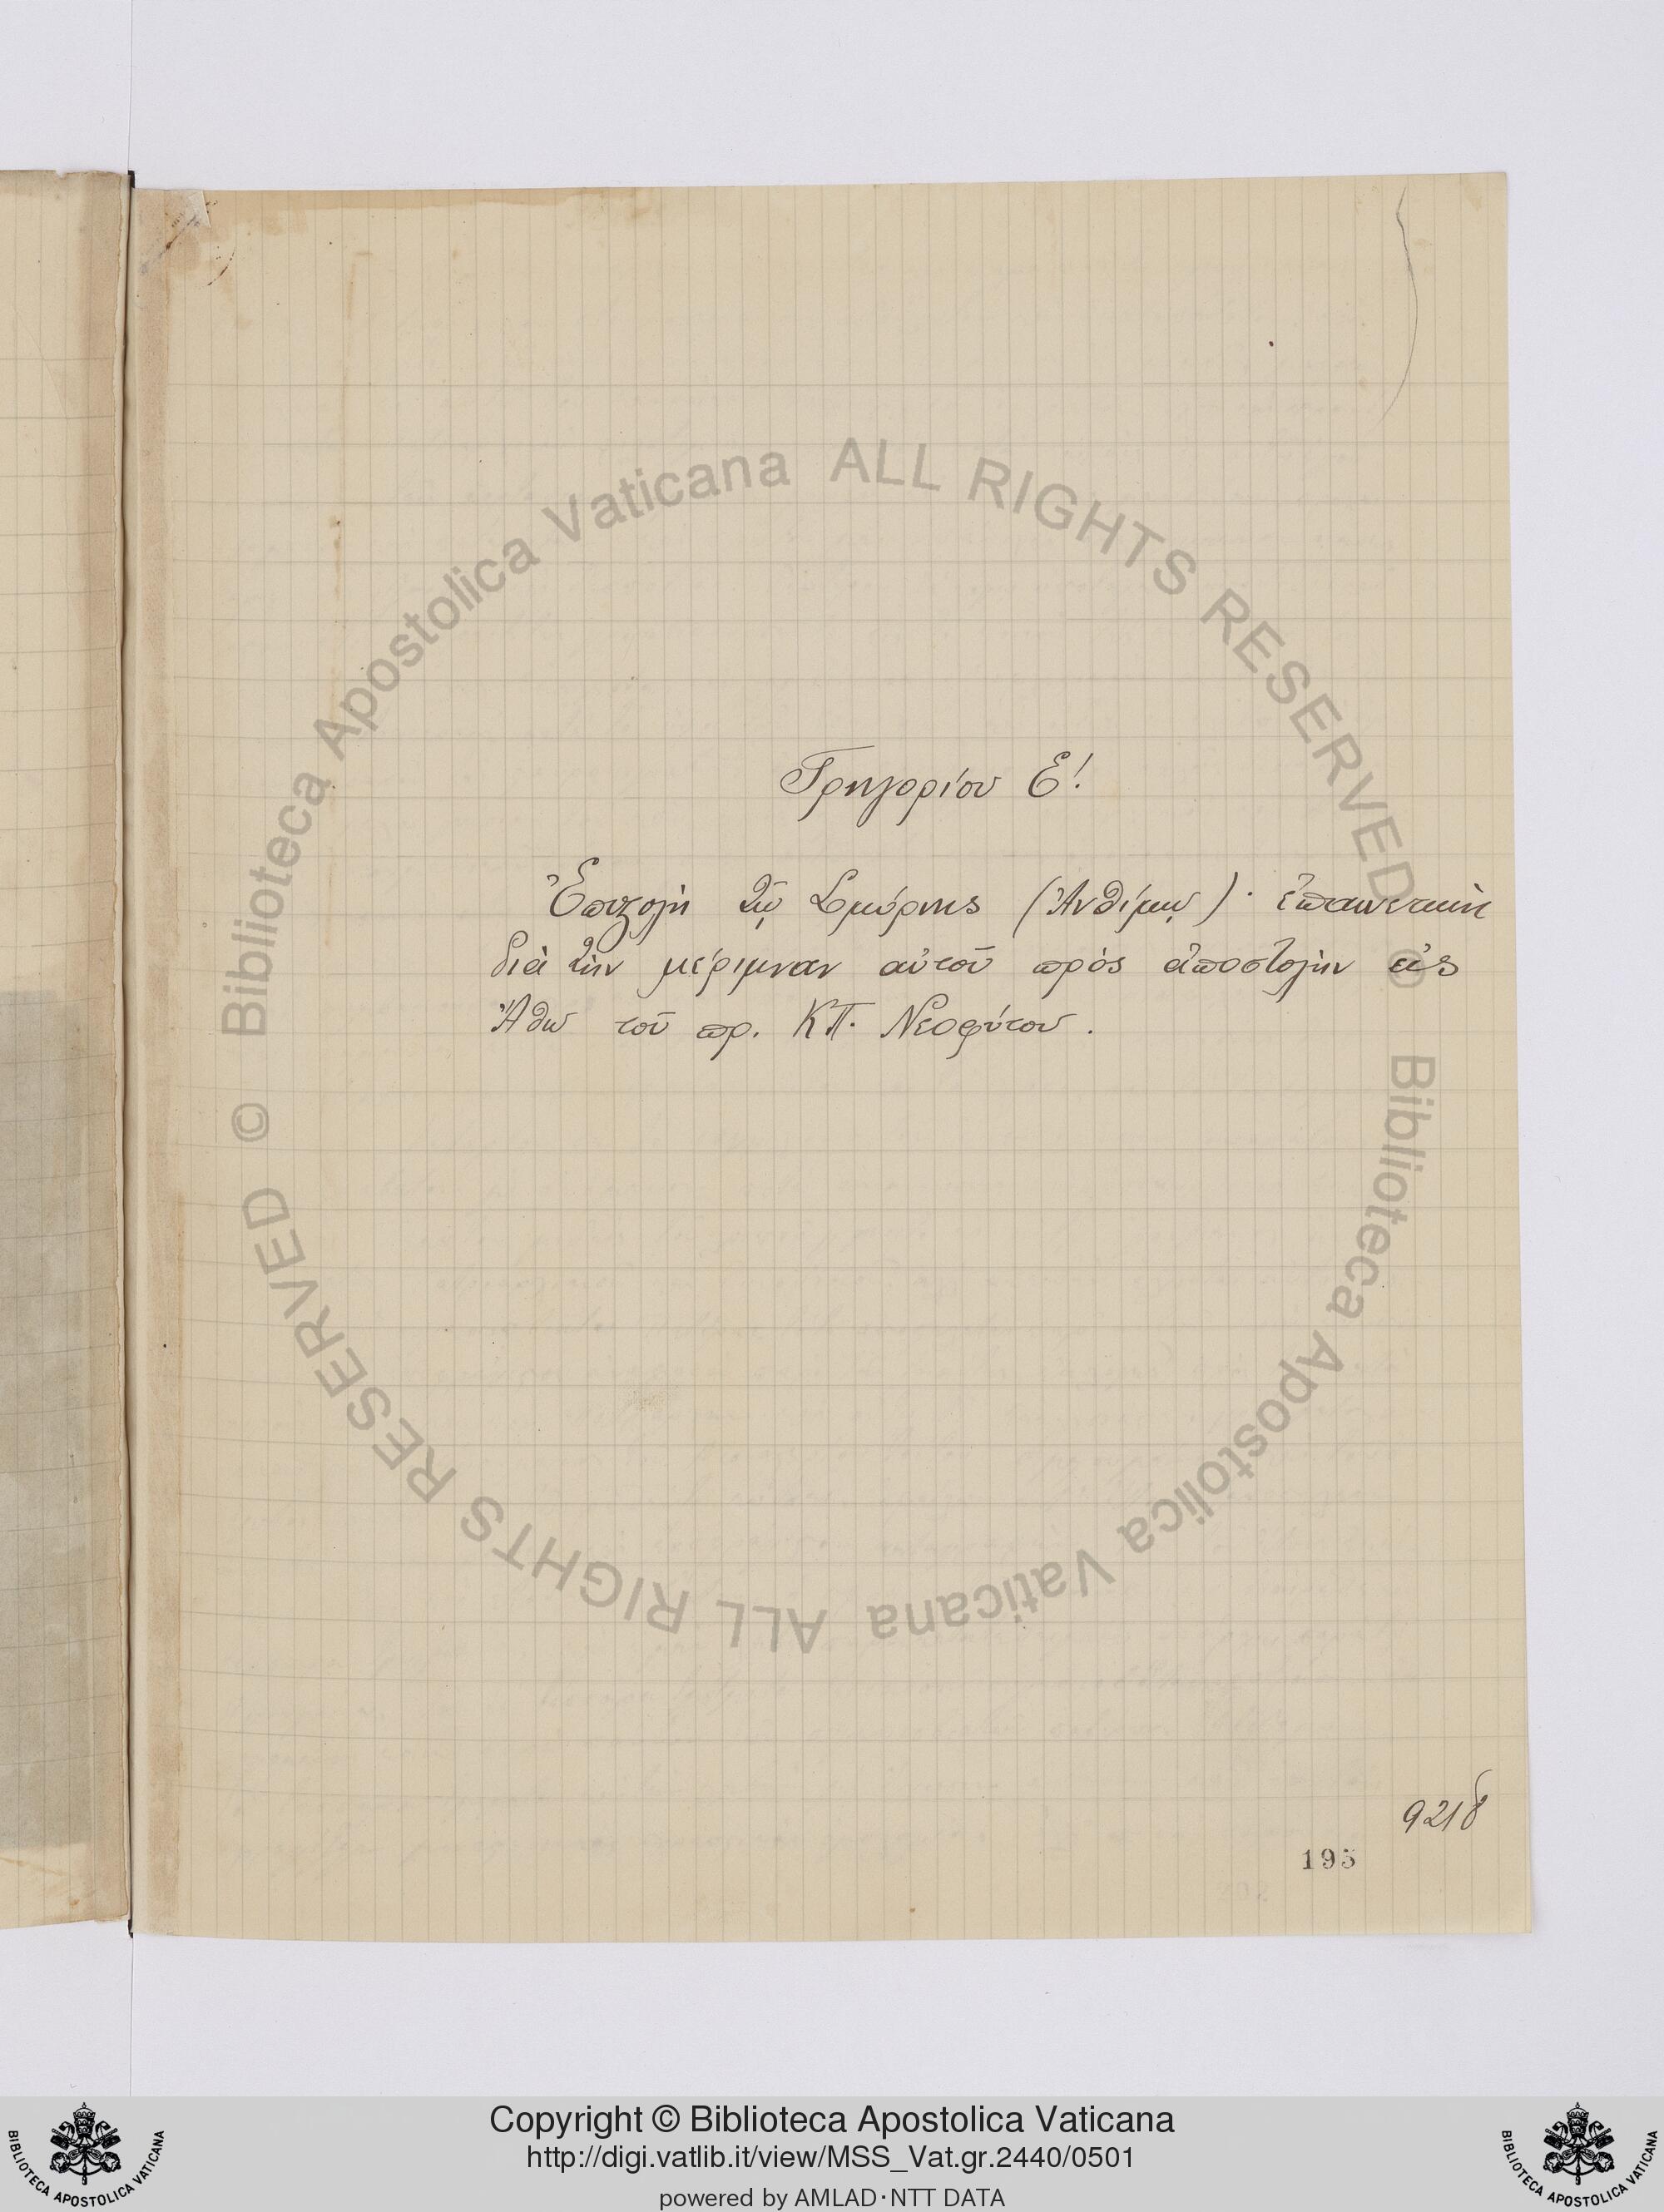 Γρηγορίου Ε!
Ἐπιστολὴ τῷ Σμύρνης (Ἀνθίμῳ)· ἐπαινετικὴ
διὰ τὴν μέριμναν αὐτοῦ πρὸς ἀποστολὴν εἰς
Ἄθω τοῦ πρ. ΚΠ. Νεοφύτου.
9218
195
© Biblioteca Apostolica Vaticana ALL RIGHTS RESERVED
© Biblioteca Apostolica Vaticana ALL RIGHTS RESERVED
Copyright © Biblioteca Apostolica Vaticana
http://digi.vatlib.it/view/MSS_Vat.gr.2440/0501
powered by AMLAD·NTT DATA
BIBLIOTECA APOSTOLICA VATICANA
BIBLIOTECA APOSTOLICA VATICANA